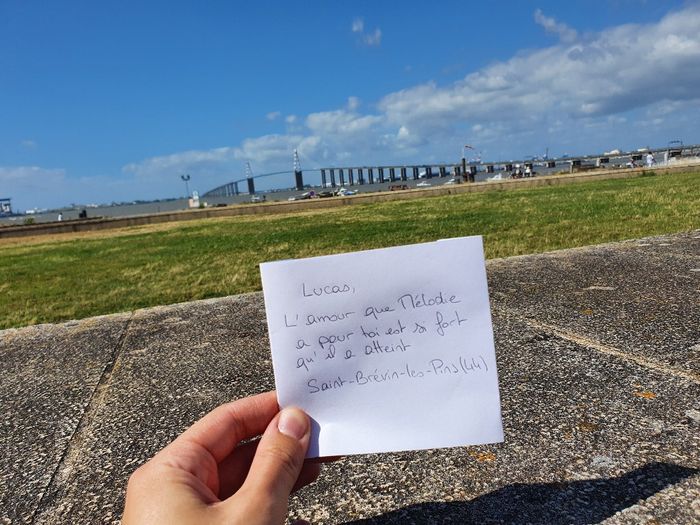 Lucas,
L'amour que Mélodie
a pour toi est si fort
qu'il a atteint
Saint-Brévin-les-Pins (44)